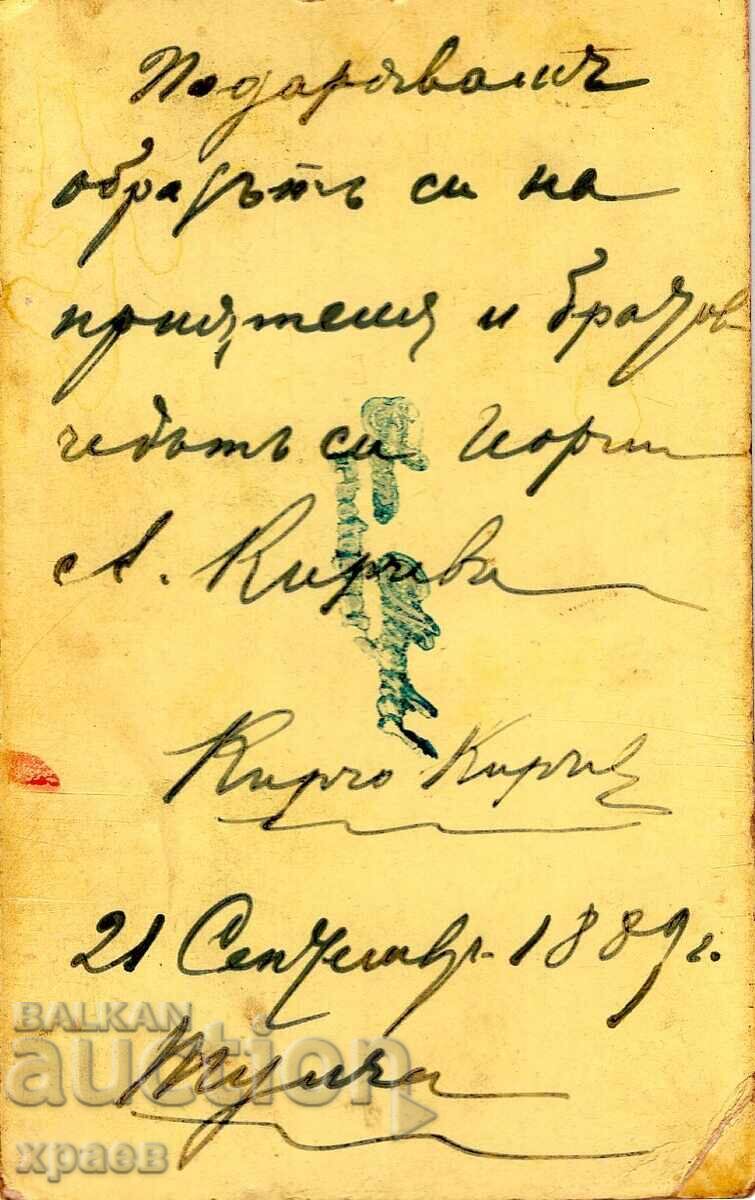 Подарявамъ
образътъ си на
приятеля и братов
чедътъ си Георги
А. Кирчева
Кирчо Кирчев
21 Септемвр. 1889 г.
Тулча
BALKAN
auction
храев